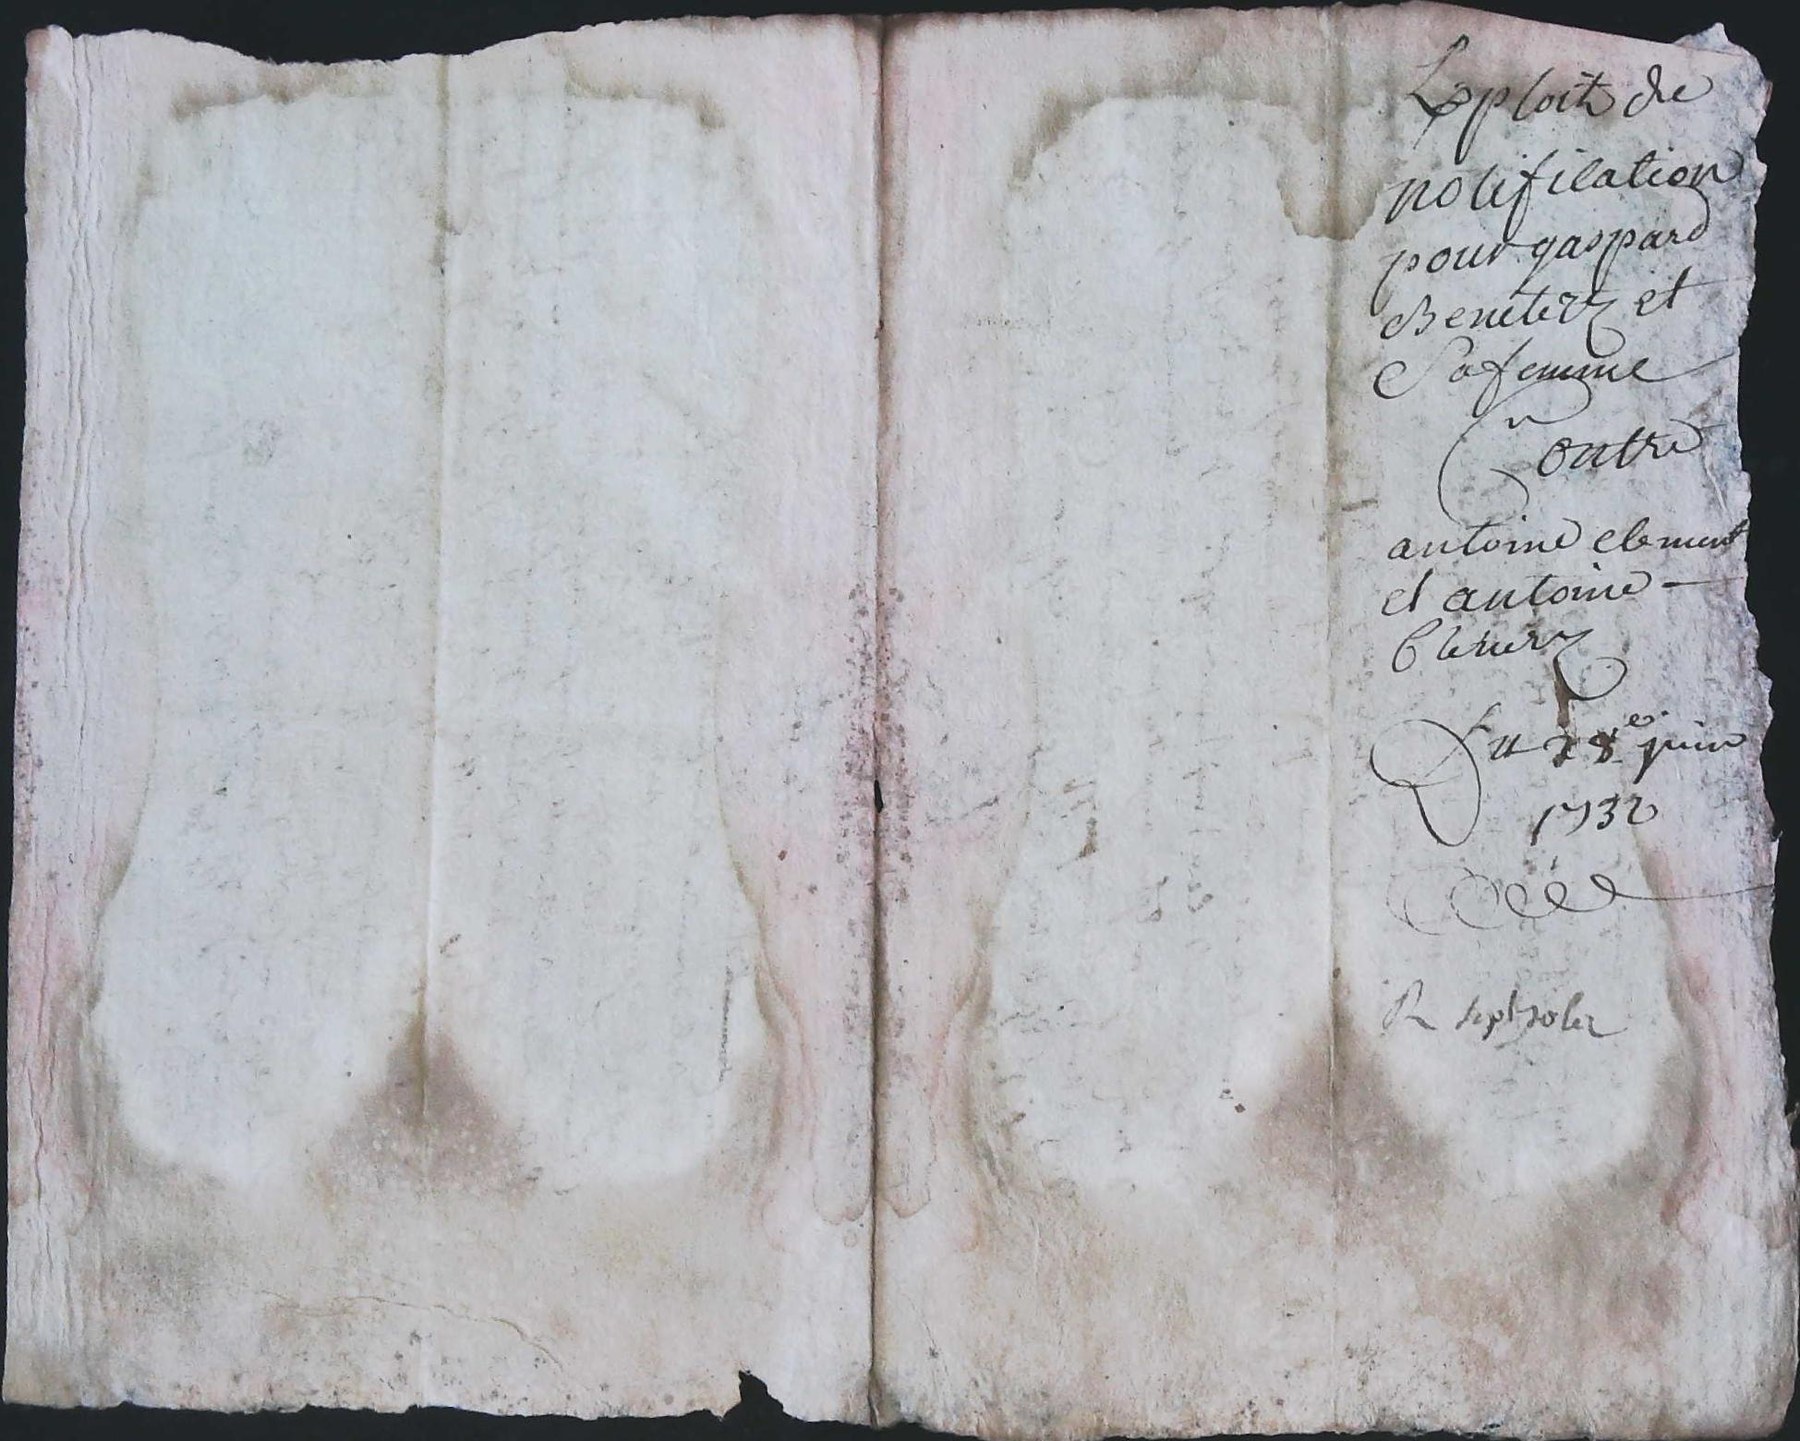 Exploit de
notification
pour gaspard
Benetier et
Sa femme
Contre
antoine clement
et antoine
Du 28e juin
1732
R sept sols